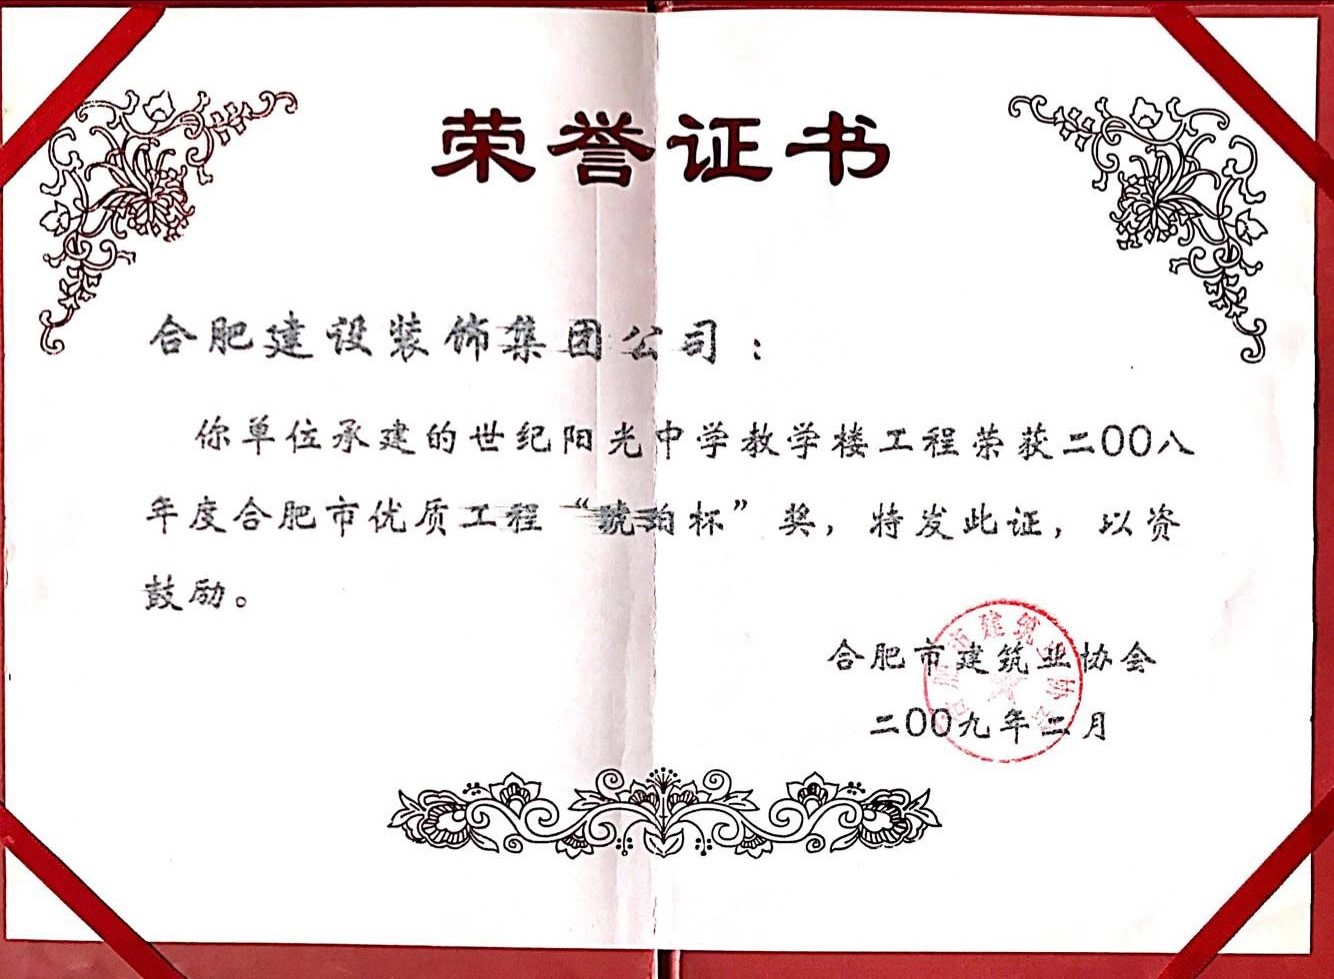 荣誉证书
合肥建设装饰集团公司：
你单位承建的世纪阳光中学教学楼工程荣获二〇〇八
年度合肥市优质工程“琥珀杯”奖，特发此证，以资
鼓励。
合肥市建筑业协会
二〇〇九年二月
合肥市建筑业协会